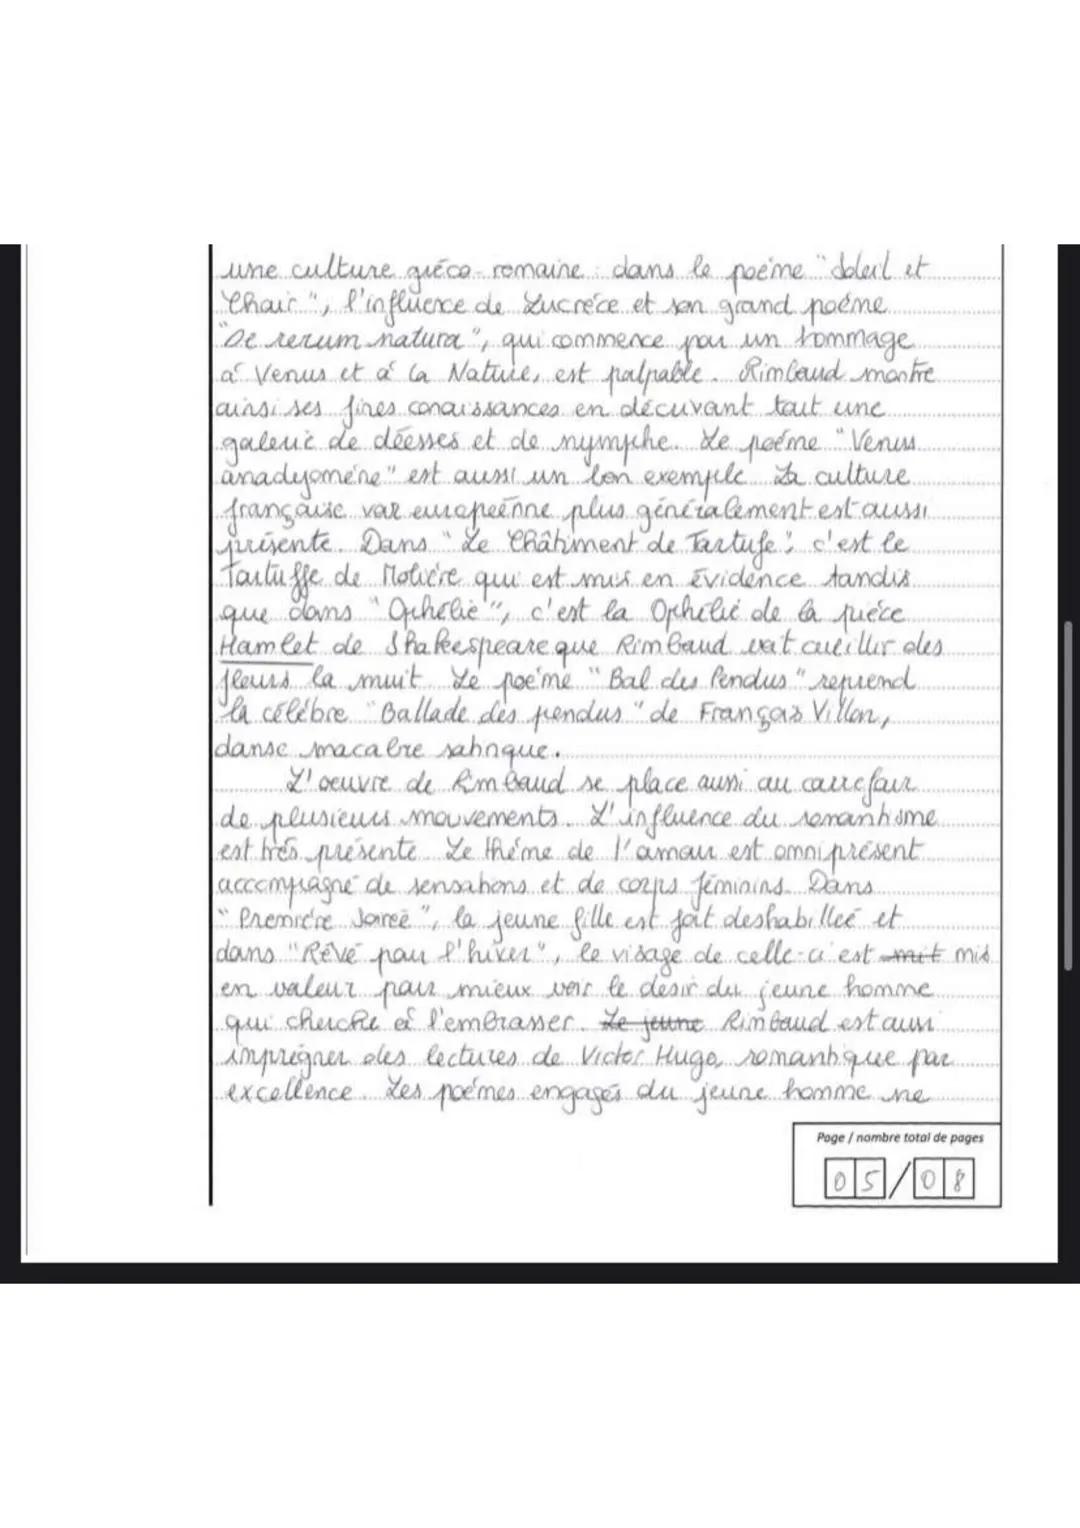 une culture gréco-romaine : dans le poème "Soleil et
Chair", l'influence de Lucrèce et son grand poème
"De rerum natura", qui commence par un hommage
à Venus et à la Nature, est palpable. Rimbaud montre
ainsi ses fines conaissances en décrivant tout une
galerie de déesses et de nymphe. Le poème "Venus
anadyomène" est aussi un bon exemple. La culture
française voir européenne plus généralement est aussi
présente. Dans "Le Châtiment de Tartufe", c'est le
Tartuffe de Molière qui est mis en évidence tandis
que dans "Ophélie", c'est la Ophélie de la pièce
Hamlet de Shakespeare que Rimbaud voit cueillir des
fleurs la nuit. Le poème "Bal des Pendus" reprend
la célèbre "Ballade des pendus" de François Villon,
danse macabre satirique.
L'oeuvre de Rimbaud se place aussi au carrefour
de plusieurs mouvements. L'influence du romantisme
est très présente. Le thème de l'amour est omniprésent
accompagné de sensations et de corps féminins. Dans
"Première Soireé", la jeune fille est fort deshabilleé et
dans "Rêvé pour l'hiver", le visage de celle-ci est mit mis
en valeur pour mieux voir le désir du jeune homme
qui cherche à l'embrasser. Le jeune Rimbaud est aussi
imprégner des lectures de Victor Hugo, romantique par
excellence. Les poèmes engagés du jeune homme ne
Page / nombre total de pages
05/08